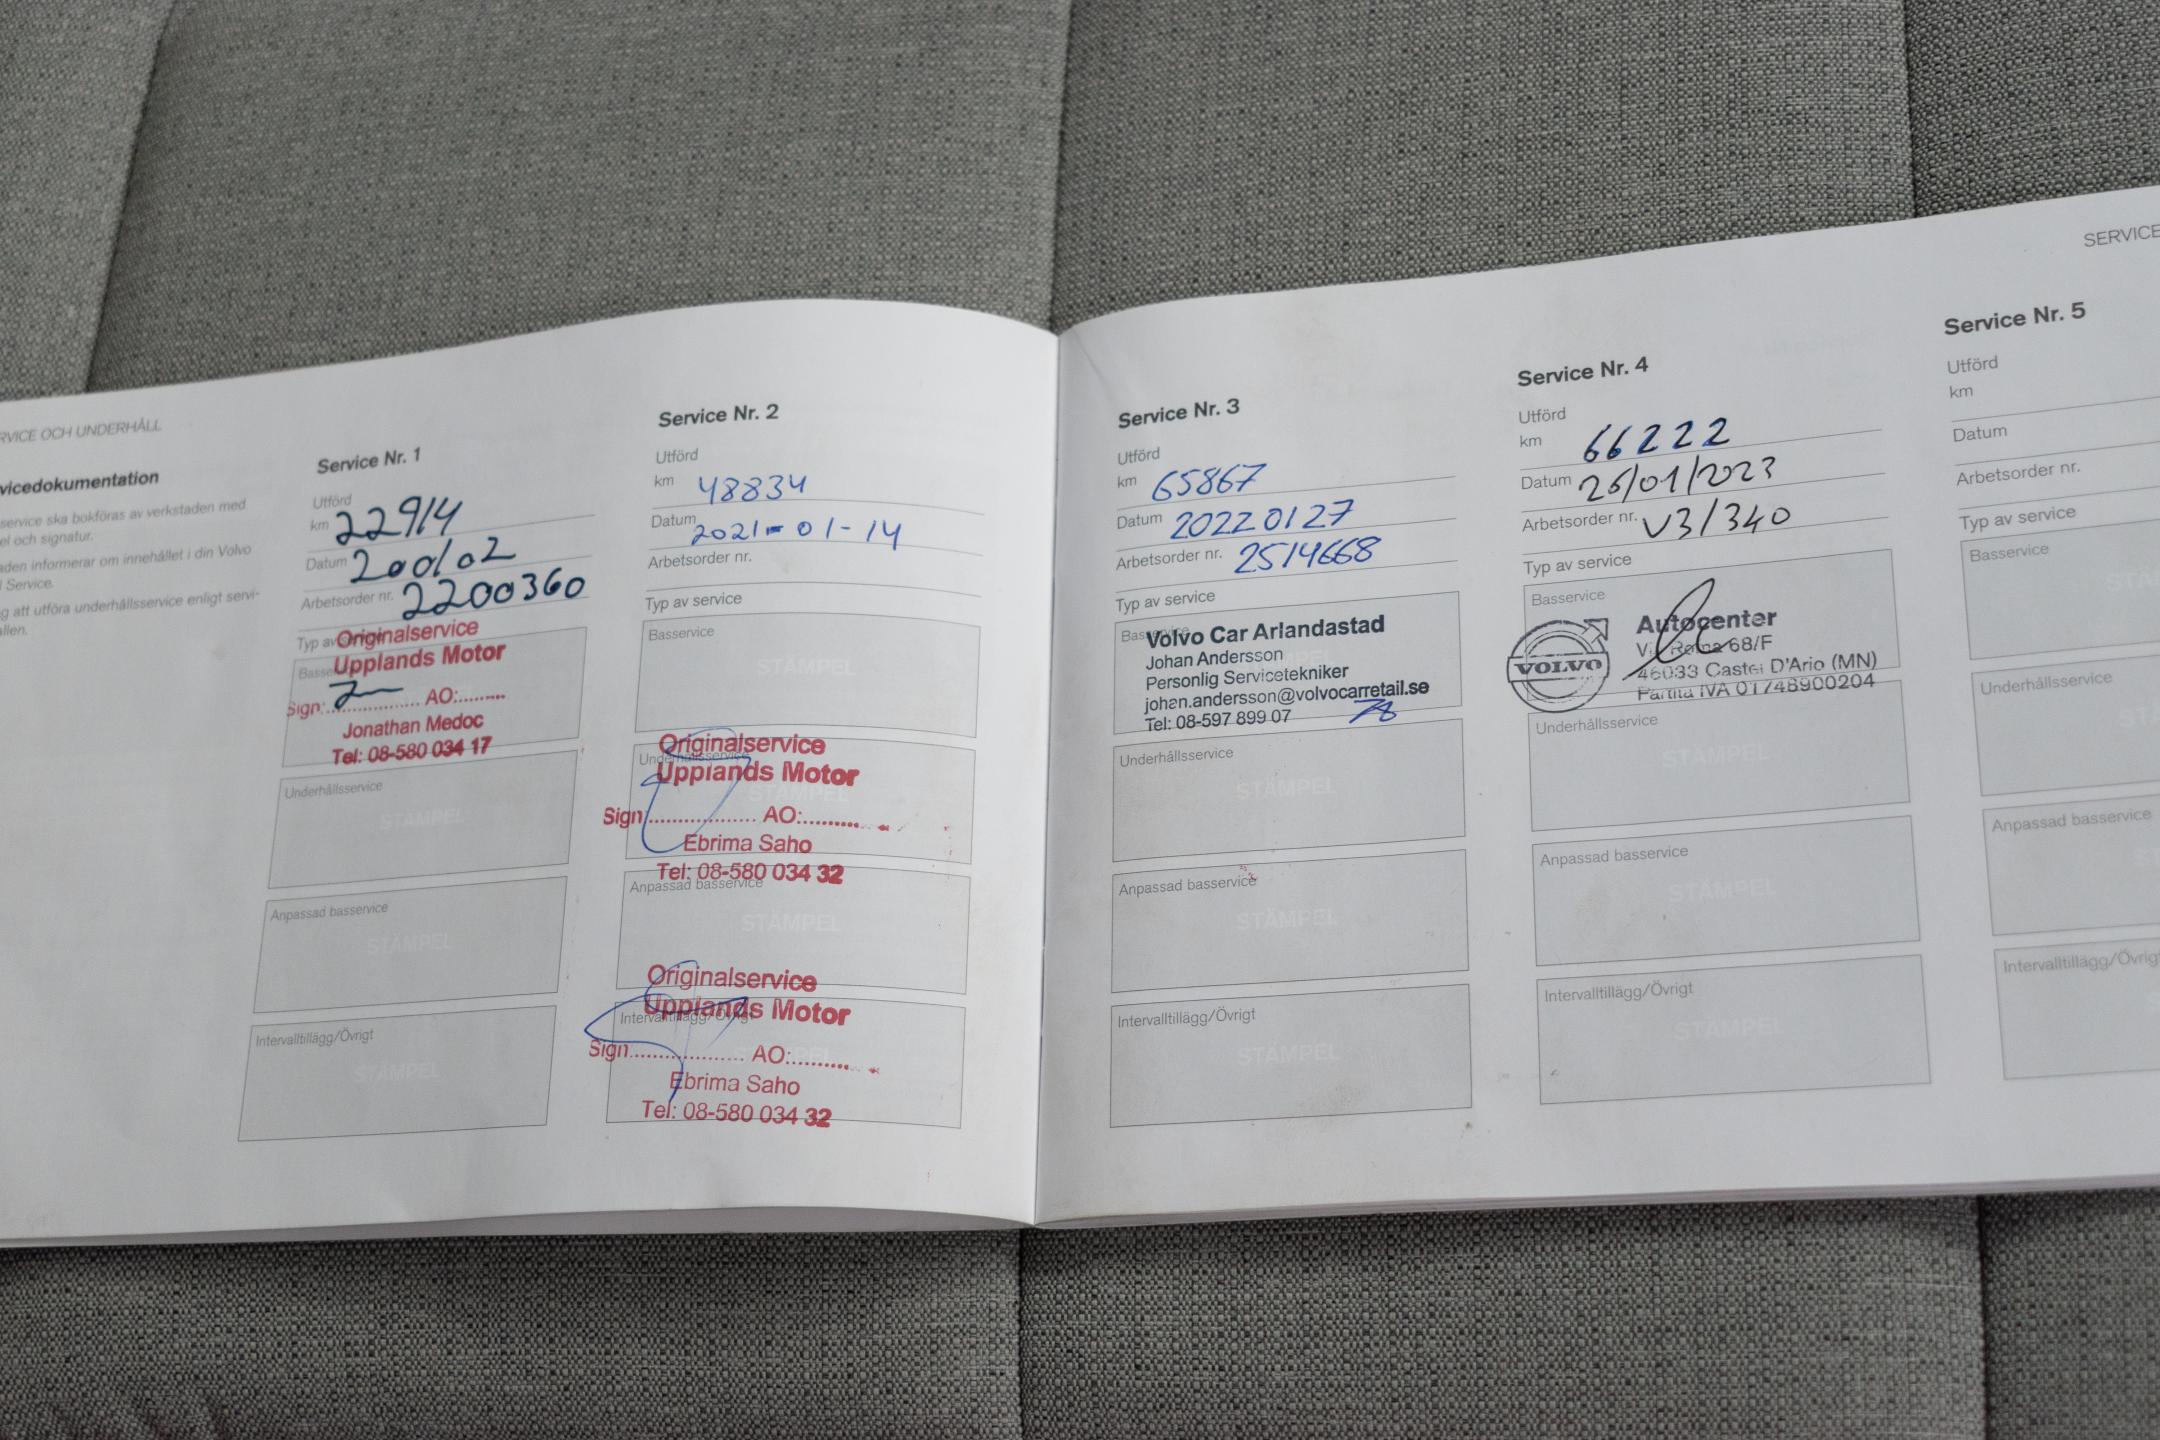 RVICE OCH UNDERHÅLL
vicedokumentation
service ska bokföras av verkstaden med
el och signatur.
aden informerar om innehållet i din Volvo
l Service.
g att utföra underhållsservice enligt servi-
allen.
Service Nr. 1
Utförd
km 22914
Datum 200102
Arbetsorder nr. 2200360
Typ av
Originalservice
Upplands Motor
Sign: AO:
Jonathan Medoc
Tel: 08-580 034 17
Underhållsservice
STÄMPEL
Anpassad basservice
STÄMPEL
Intervalltillägg/Övrigt
STÄMPEL
Service Nr. 2
Utförd
km 48834
Datum 2021-01-14
Arbetsorder nr.
Typ av service
Basservice
STÄMPEL
Underhållsservice
STÄMPEL
Originalservice
Upplands Motor
Sign. AO:
Ebrima Saho
Tel: 08-580 034 32
Anpassad basservice
STÄMPEL
Intervalltillägg/Övrigt
Originalservice
Upplands Motor
Sign. AO:
Ebrima Saho
Tel: 08-580 034 32
Service Nr. 3
Utförd
km 65867
Datum 20220127
Arbetsorder nr. 2514668
Typ av service
Basservice
Volvo Car Arlandastad
Johan Andersson
Personlig Servicetekniker
johan.andersson@volvocarretail.se
Tel: 08-597 899 07
Underhållsservice
STÄMPEL
Anpassad basservice
STÄMPEL
Intervalltillägg/Övrigt
STÄMPEL
Service Nr. 4
Utförd
km 66222
Datum 26/01/2023
Arbetsorder nr. V3/340
Typ av service
Basservice
VOLVO
Autocenter
Via Roma 68/F
46033 Castel D'Ario (MN)
Partita IVA 01748900204
Underhållsservice
STÄMPEL
Anpassad basservice
STÄMPEL
Intervalltillägg/Övrigt
STÄMPEL
SERVICE
Service Nr. 5
Utförd
km
Datum
Arbetsorder nr.
Typ av service
Basservice
STÄ
Underhållsservice
STÄ
Anpassad basservice
Intervalltillägg/Övrig